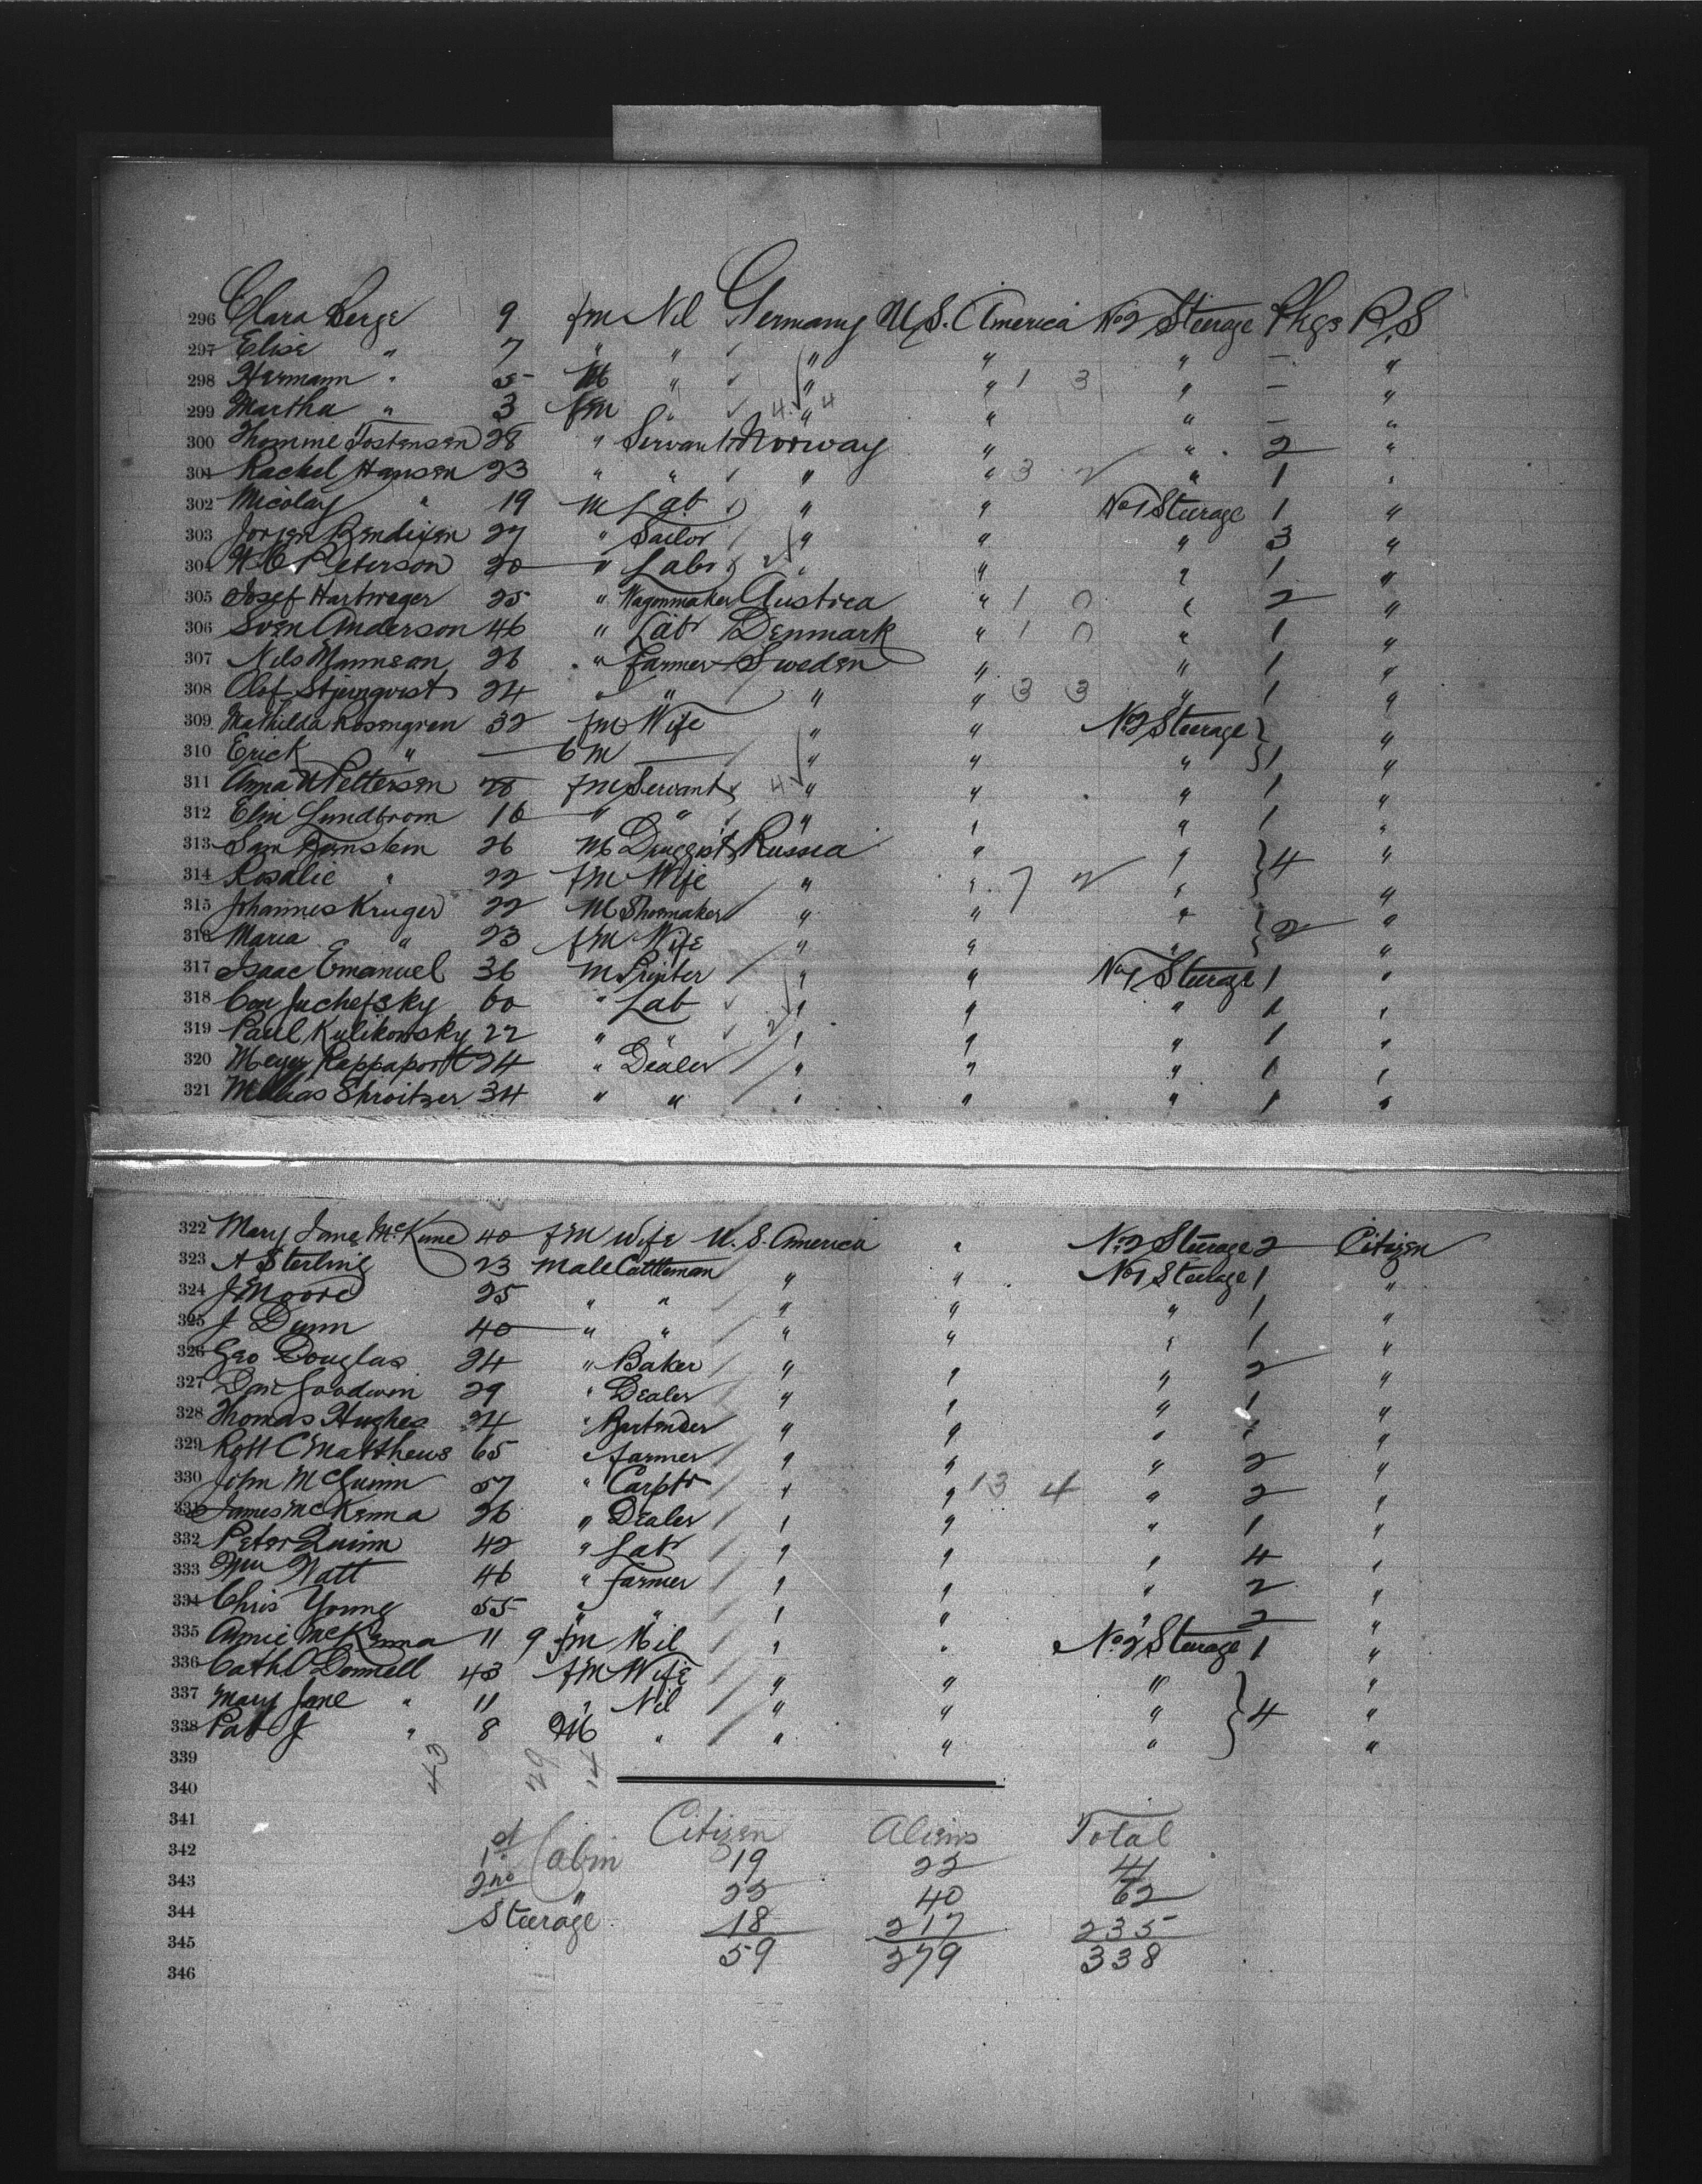 296 Clara Berge 9 fm Nil Germany U.S. America No 2 Steerage Pkgs P.S
297 Elise " 7 " " " " " — "
298 Hermann " 5 M " " " 1 3 " — "
299 Martha " 3 fm " 4 " 4 " " — "
300 Thomine Tostensen 28 " Servant Norway " " 2 "
301 Rachel Hansen 23 " " " " 3 2 " 1 "
302 Nicolay " 19 M Lab " " No 1 Steerage 1 "
303 Jorjen Bendixen 27 " Sailor " " " 3 "
304 Peterson 20 " Labr 2 " " " 1 "
305 Josef Hartwager 25 " Wagonmaker Austria " 1 0 " 2 "
306 Sven Anderson 46 " Labr Denmark " 1 0 " 1 "
307 Nils Mannson 26 " Farmer Sweden " " 1 "
308 Olof Stjernqvist 24 " " " " 3 3 " 1 "
309 Mathilda Rosengren 32 fm Wife " " No 2 Steerage "
310 Erick " — 6 M — " " " 1 "
311 Anna Pettersen 28 fm Servant 4 " " " 1 "
312 Elin Lundbrom 16 " " " " " 1 "
313 Sam 26 M Druggist Russia " " 4 "
314 Rosalie " 22 fm Wife " " 7 2 " "
315 Johannes Kruger 22 M Shoemaker " " " 2 "
316 Maria " 23 fm Wife " " " "
317 Isaac Emanuel 36 M Printer " " No 1 Steerage 1 "
318 Juchefsky 60 " Lab " " " 1 "
319 Paul Kulikowsky 22 " " 2 " " " 1 "
320 Meyer Rappaport 24 " Dealer " " " 1 "
321 Shroitzer 34 " " " " " 1 "
322 Mary Jane McKune 40 fm Wife U.S. America " No 2 Steerage 2 Citizen
323 A Sterling 23 Male Cattleman " " No 1 Steerage 1 "
324 J Moore 25 " " " " " 1 "
325 J Dunn 40 " " " " " 1 "
326 Geo Douglas 24 " Baker " " " 2 "
327 Dan Goodwin 29 " Dealer " " " 1 "
328 Thomas Hughes 24 " Bartender " " " " "
329 Robt C Matthews 65 " Farmer " " " 2 "
330 John McGuinn 57 " Carptr " " 13 4 " 2 "
331 James McKenna 26 " Dealer " " " 1 "
332 Peter Quinn 42 " Labr " " " 4 "
333 Wm Watt 46 " Farmer " " " 2 "
334 Chris Young 55 " " " " " 2 "
335 Annie McKenna 11 9 fm Nil " " No 2 Steerage 1 "
336 Cath O'Donnell 43 fm Wife " " " "
337 Mary Jane " 11 " Nil " " " 4 "
338 Pat J " 8 M " " " " "
339 43 29 14
340
341 Citizen Aliens Total
342 1st Cabin 19 22 41
343 2nd " 22 40 62
344 Steerage 18 217 235
345 59 279 338
346